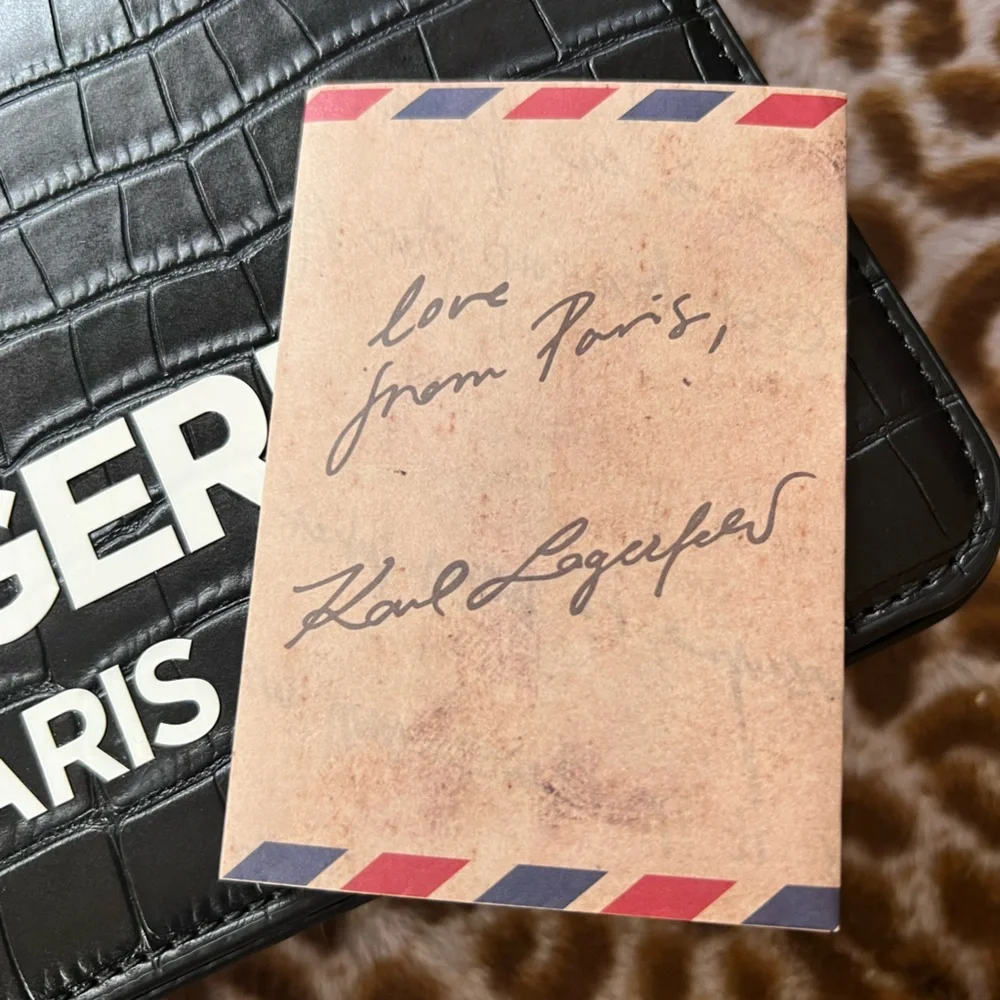 love
from Paris,
Karl Lagerfeld
GER
ARIS